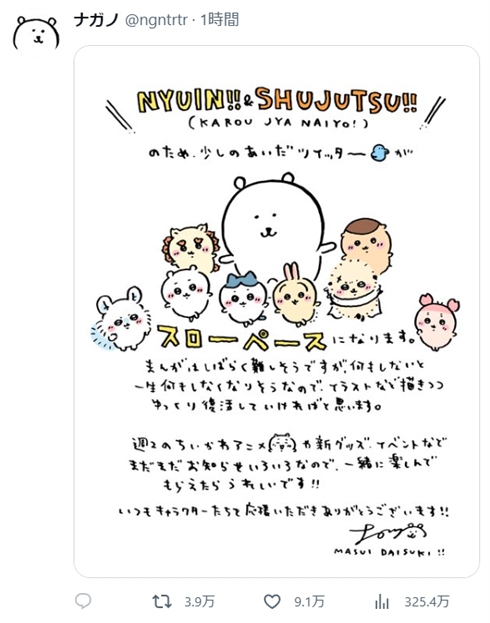 ナガノ @ngntrtr · 1時間
NYUIN!!&SHUJUTSU!!
(KAROU JYA NAIYO!)
のため、少しのあいだツイッターが
スローペースになります。
まんがはしばらく難しそうですが、何もしないと
一生何もしなくなりそうなので、イラストなど描きつつ
ゆっくり復活していければと思います。
週2のちいかわアニメや新グッズ、イベントなど
まだまだお知らせいろいろなので、一緒に楽しんで
もらえたらうれしいです!!
いつもキャラクターたちを応援いただきありがとうございます!!
MASUI DAISUKI!!
3.9万 9.1万 325.4万